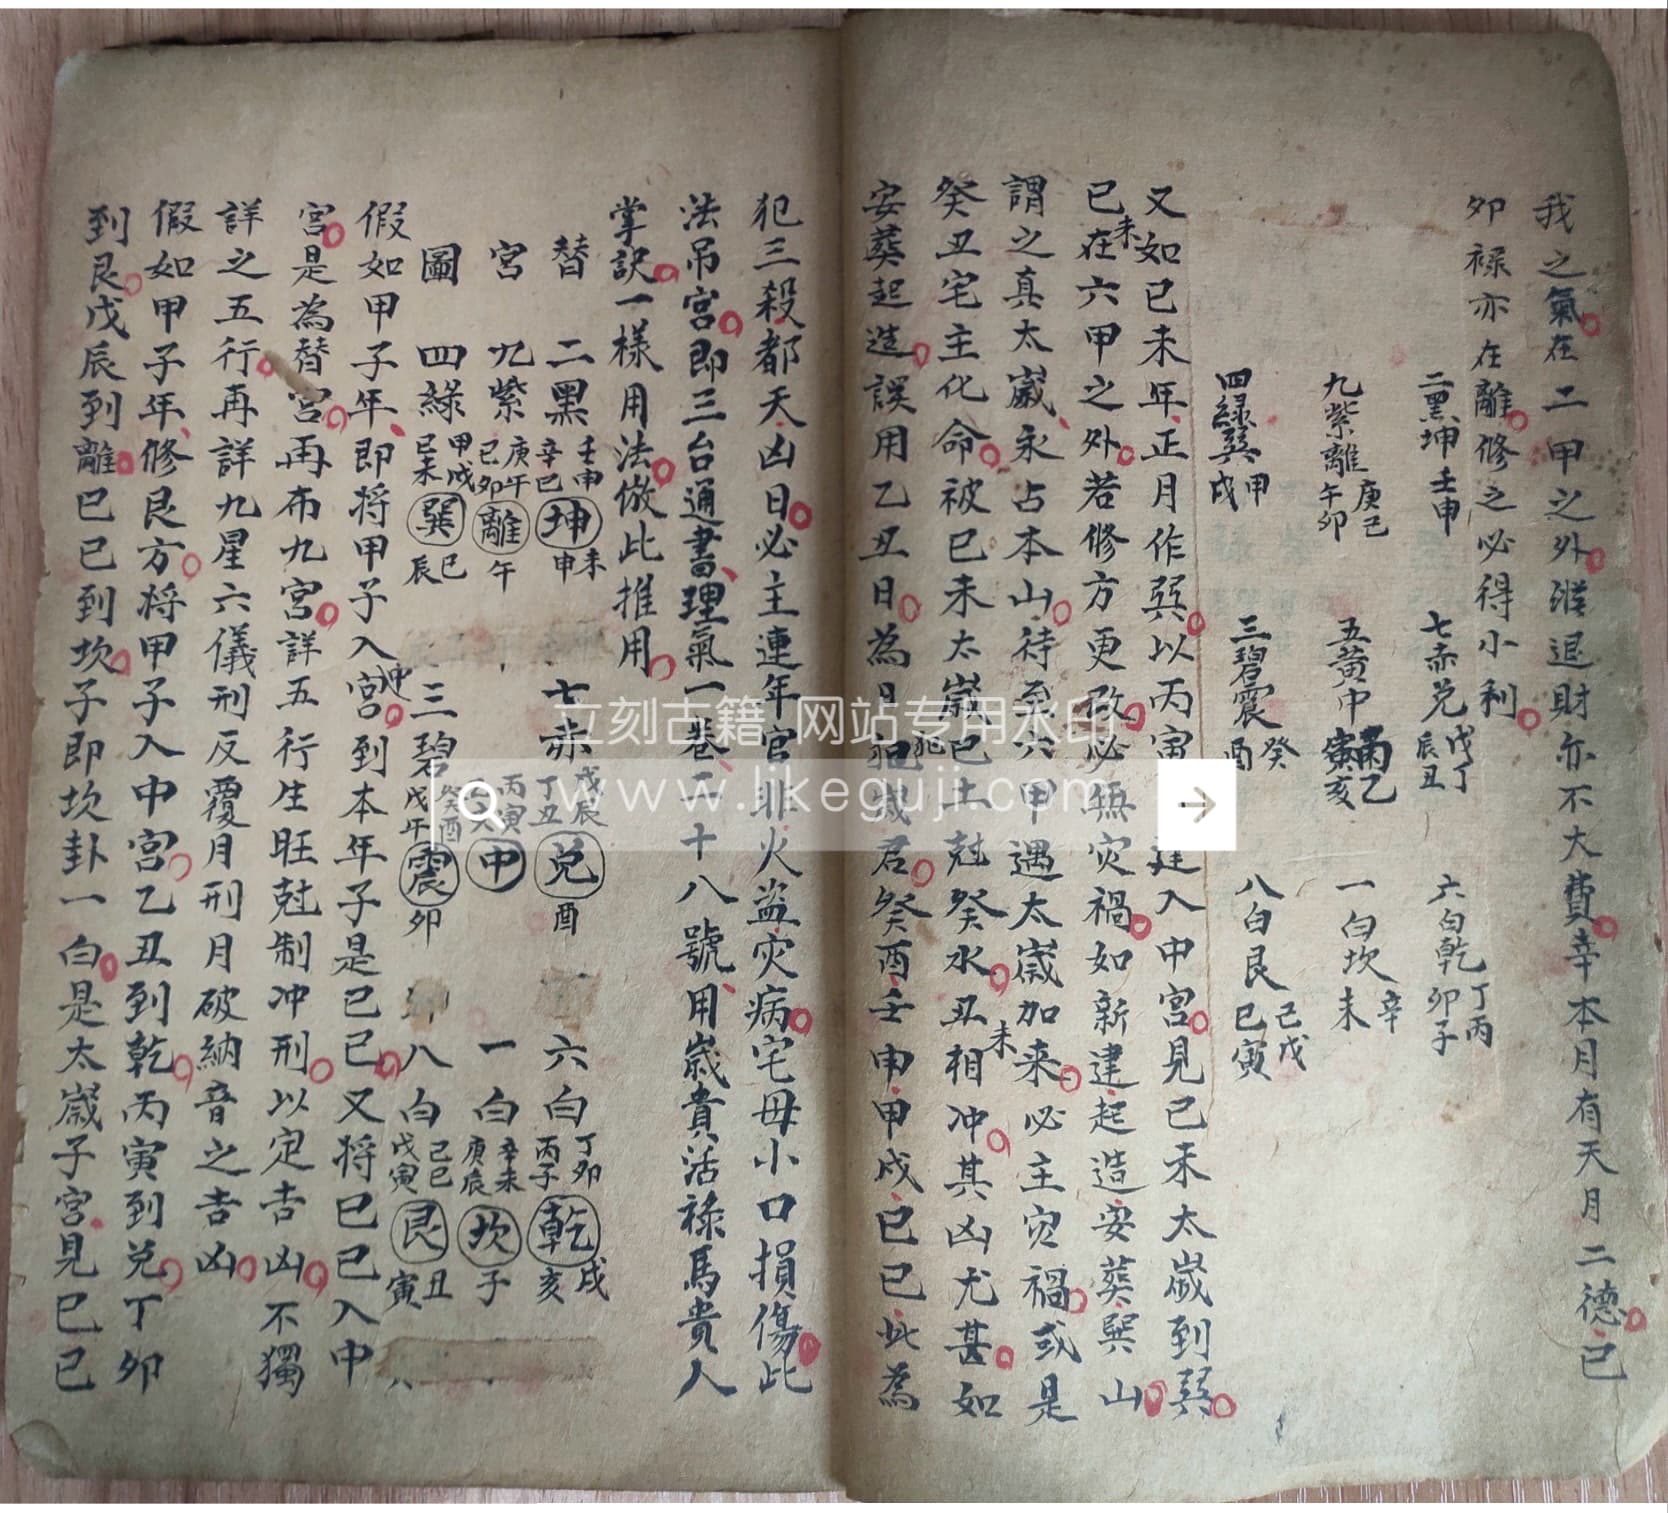 我之氣在二甲之外雖退財亦不大費辛本月有天月二德己
夘祿亦在離修之必得小利
二黑坤壬申 七赤兌戊辰丁丑 六白乾丁卯丙子
九紫離庚午己卯 五黃中丙寅乙亥 一白坎辛未
四綠巽甲戌 三碧震癸酉 八白艮己巳戊寅
又如己未年正月作巽以丙寅建入中宮見己未太歲到巽
己未在六甲之外若修方更改必無灾禍如新建起造安葬巽山
謂之真太歲永占本山待至六甲遇太歲加来必主灾禍或是
癸丑宅主化命被己未太歲己土尅癸水丑未相冲其凶尤甚如
安葬起造誤用乙丑日為日犯歲君癸酉壬申甲戌己巳此為
犯三殺都天凶日必主連年官非火盜灾病宅母小口損傷此
法吊宮即三台通書理氣一卷二十八號用歲貴活祿馬貴人
掌訣一樣用法倣此推用
替 二黑壬申辛巳坤未申 七赤戊辰丁丑兌酉 六白丁卯丙子乾戌亥
宮 九紫庚午己卯離午 丙寅乙亥中 一白辛未庚辰坎子
圖 四綠甲戌己未巽巳辰 三碧癸酉戊午震卯 八白己巳戊寅艮丑寅
假如甲子年即将甲子入中宮到本年子是己巳又将己巳入中
宮是為替宮再布九宮詳五行生旺尅制冲刑以定吉凶不獨
詳之五行再詳九星六儀刑反覆月刑月破納音之吉凶
假如甲子年修艮方将甲子入中宮乙丑到乾丙寅到兌丁夘
到艮戊辰到離己巳到坎子即坎卦一白是太歲子宮見己巳
立刻古籍 网站专用水印
www.likeguji.com